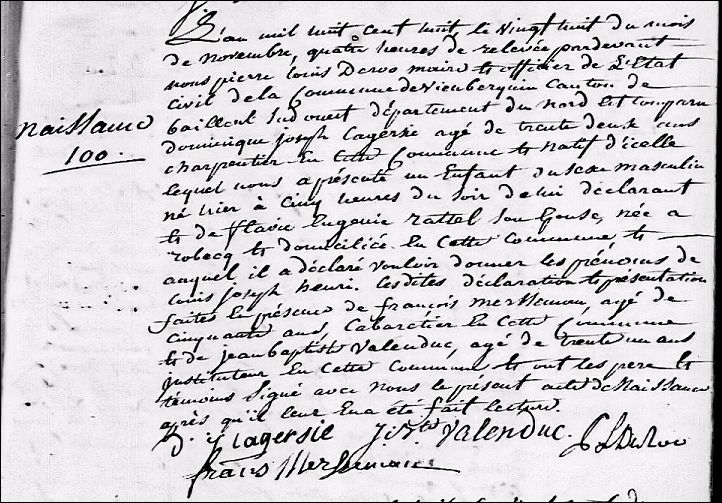 L'an mil huit cent huit le vingt huit du mois
de Novembre, quatre heures de relevée pardevant
nous pierre louis Deroo maire et officier de L'Etat
Civil de la Commune de Vieuberquin Canton de
bailleul Sud ouest département du Nord Est comparu
Naissance
100.
dominique joseph Lagersie agé de trente deux ans
charpentier En Cette Commune et Natif d'icelle
lequel nous a présenté un Enfant du Sexe Masculin
né hier à Cinq heures du Soir de lui déclarant
et de flavie Eugenie rattel Son Epouse, née a
robecq et domiciliée En Cette Commune, et
auquel il a déclaré vouloir donner les prénoms de
louis joseph henri. Lesdites déclaration et présentation
faites En présence de françois Merssemon, agé de
Cinquante ans, Cabarétier En Cette Commune
et de jean baptiste Valenduc, agé de trente un ans
Instituteur En Cette Commune et ont les pere et
témoins Signé avec Nous le présent acte de Naissance
après qu'il leur En a été fait lecture.
d. j. lagersie j. bte Valenduc. P L Deroo